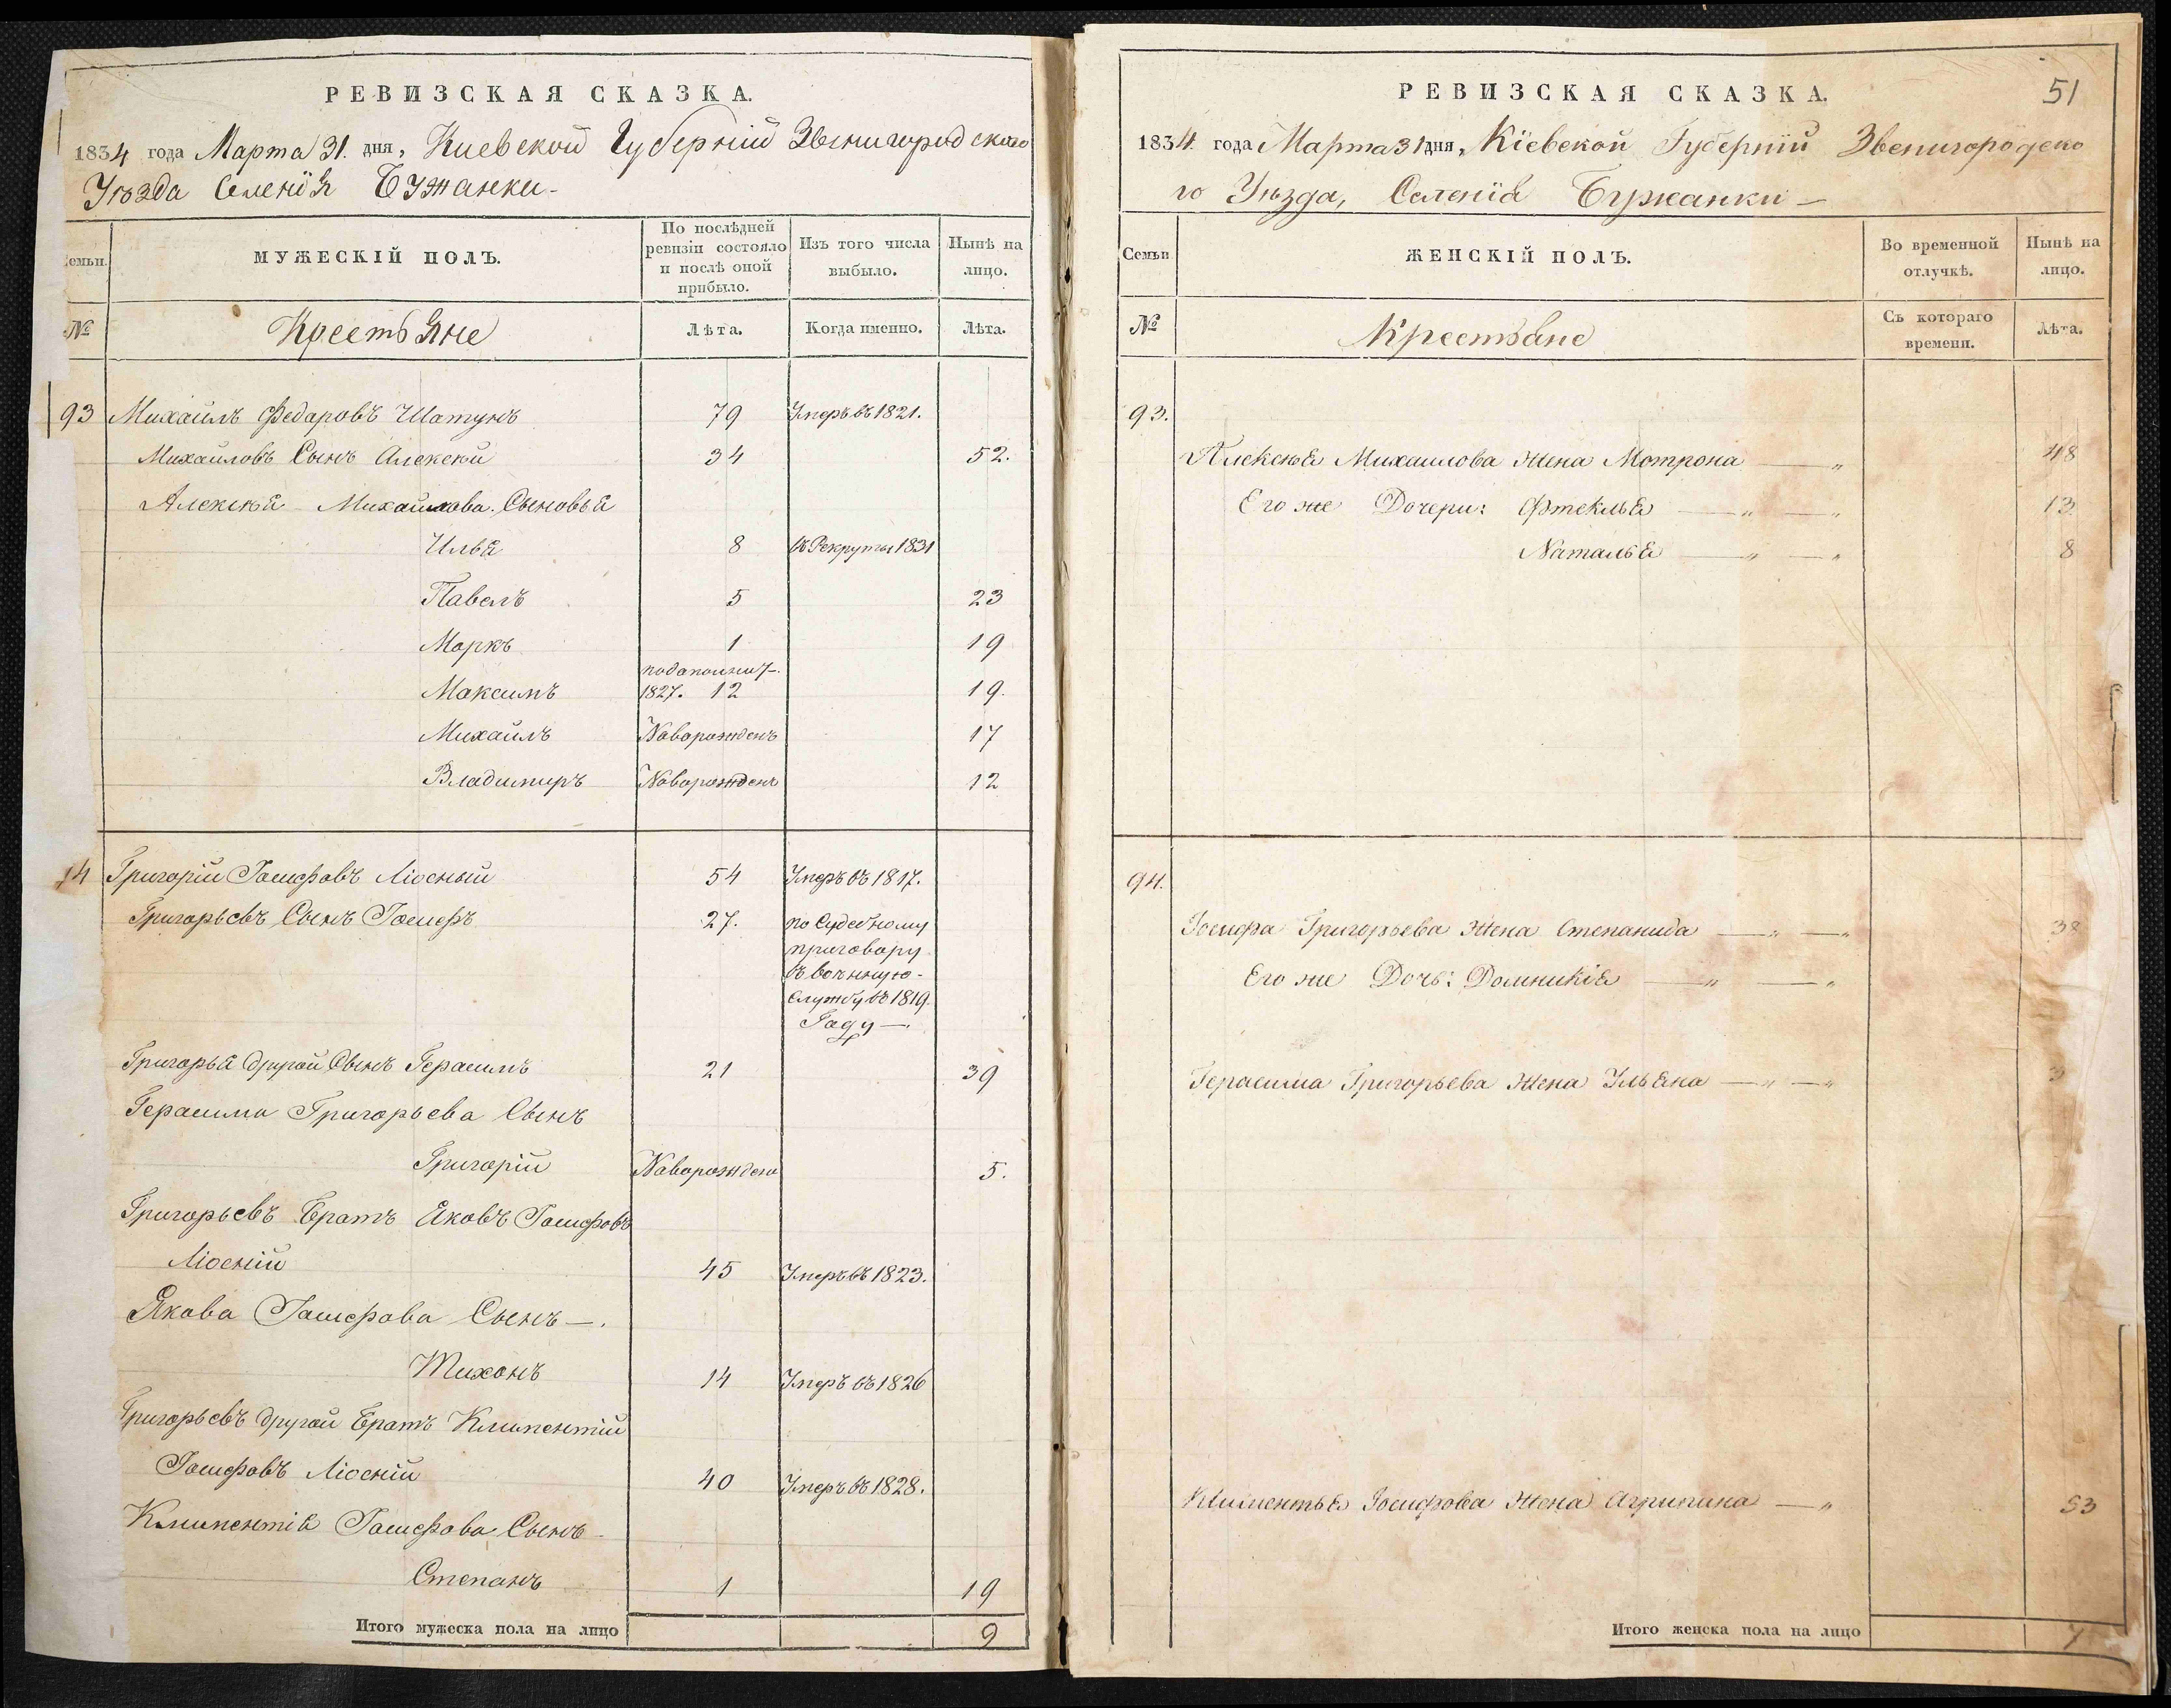 РЕВИЗСКАЯ СКАЗКА.
1834 года Марта 31. дня, Киевской Губерніи Звенигородского
Уѣзда Селенія Бужанки-
Семьи.
МУЖЕСКІЙ ПОЛЪ.
По послѣдней ревизіи состояло и послѣ оной прибыло.
Изъ того числа выбыло.
Нынѣ на лицо.
№
Крестьяне
Лѣта.
Когда именно.
Лѣта.
93 Михайлъ Федаровъ Шатунъ 79 Умеръ въ 1821.
Михайловъ Сынъ Алексей 34 52.
Алексѣя Михайлова Сыновья
Илья 8 въ Рекруты 1831
Павелъ 5 23
Маркъ 1 19
Максимъ 1827. 12 19.
Михайлъ Наворожденъ 17
Владимиръ Наворожденъ 12
94 Григорій Іосифовъ Ліосный 54 Умеръ въ 1817.
Григорьевъ Сынъ Іосифъ 27. по Судебному
приговору
въ военную-
службу въ 1819.
Году—.
Григорья другой Сынъ Герасимъ 21 39
Герасима Григорьева Сынъ
Григорій Наворожденъ 5.
Григорьевъ Братъ Яковъ Іосифовъ
Ліосній 45 Умеръ въ 1823.
Якова Іосифова Сынъ—.
Тихонъ 14 Умеръ въ 1826
Григорьевъ другой Братъ Климентій
Іосифовъ Ліосній 40 Умеръ въ 1828.
Климентія Іосифова Сынъ-
Степанъ 1 19
Итого мужеска пола на лицо 9
51
РЕВИЗСКАЯ СКАЗКА.
1834. года Марта 31 дня, Кіевской Губерніи Звенигородско
го Уѣзда, Селенія Бужанки—
Семьи.
ЖЕНСКІЙ ПОЛЪ.
Во временной отлучкѣ.
Нынѣ на лицо.
№
Крестьяне
Съ котораго времени.
Лѣта.
93.
Алексѣя Михаилова Жена Мотрона — „ 48
Его же Дочери: Фтекля — „ — „ 13
Наталья — „ — „ 8
94.
Іосифа Григорьева Жена Степанида — „ — „ 38
Его же Дочь: Домникія — „ — „
Герасима Григорьева Жена Ульяна — „ — „
Климентья Іосифова Жена Агрипина — „ 53
Итого женска пола на лицо 7